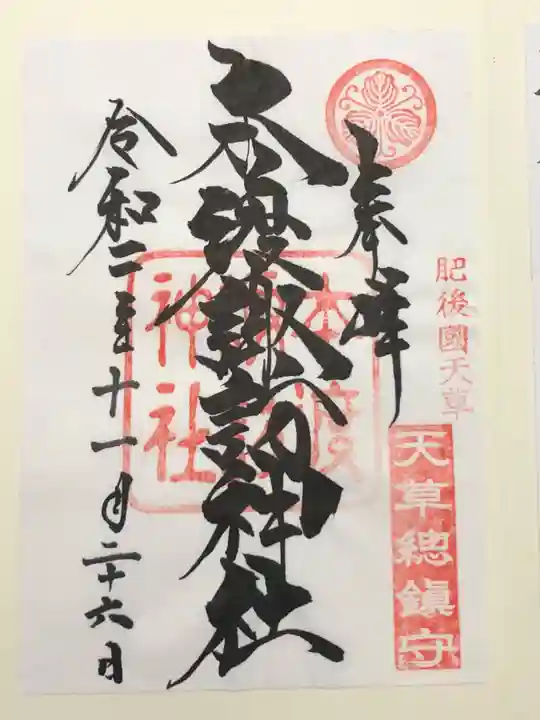 肥後國天草
天草總鎮守
奉拝
本渡諏訪神社
本渡
諏訪
神社
令和二年十一月二十六日